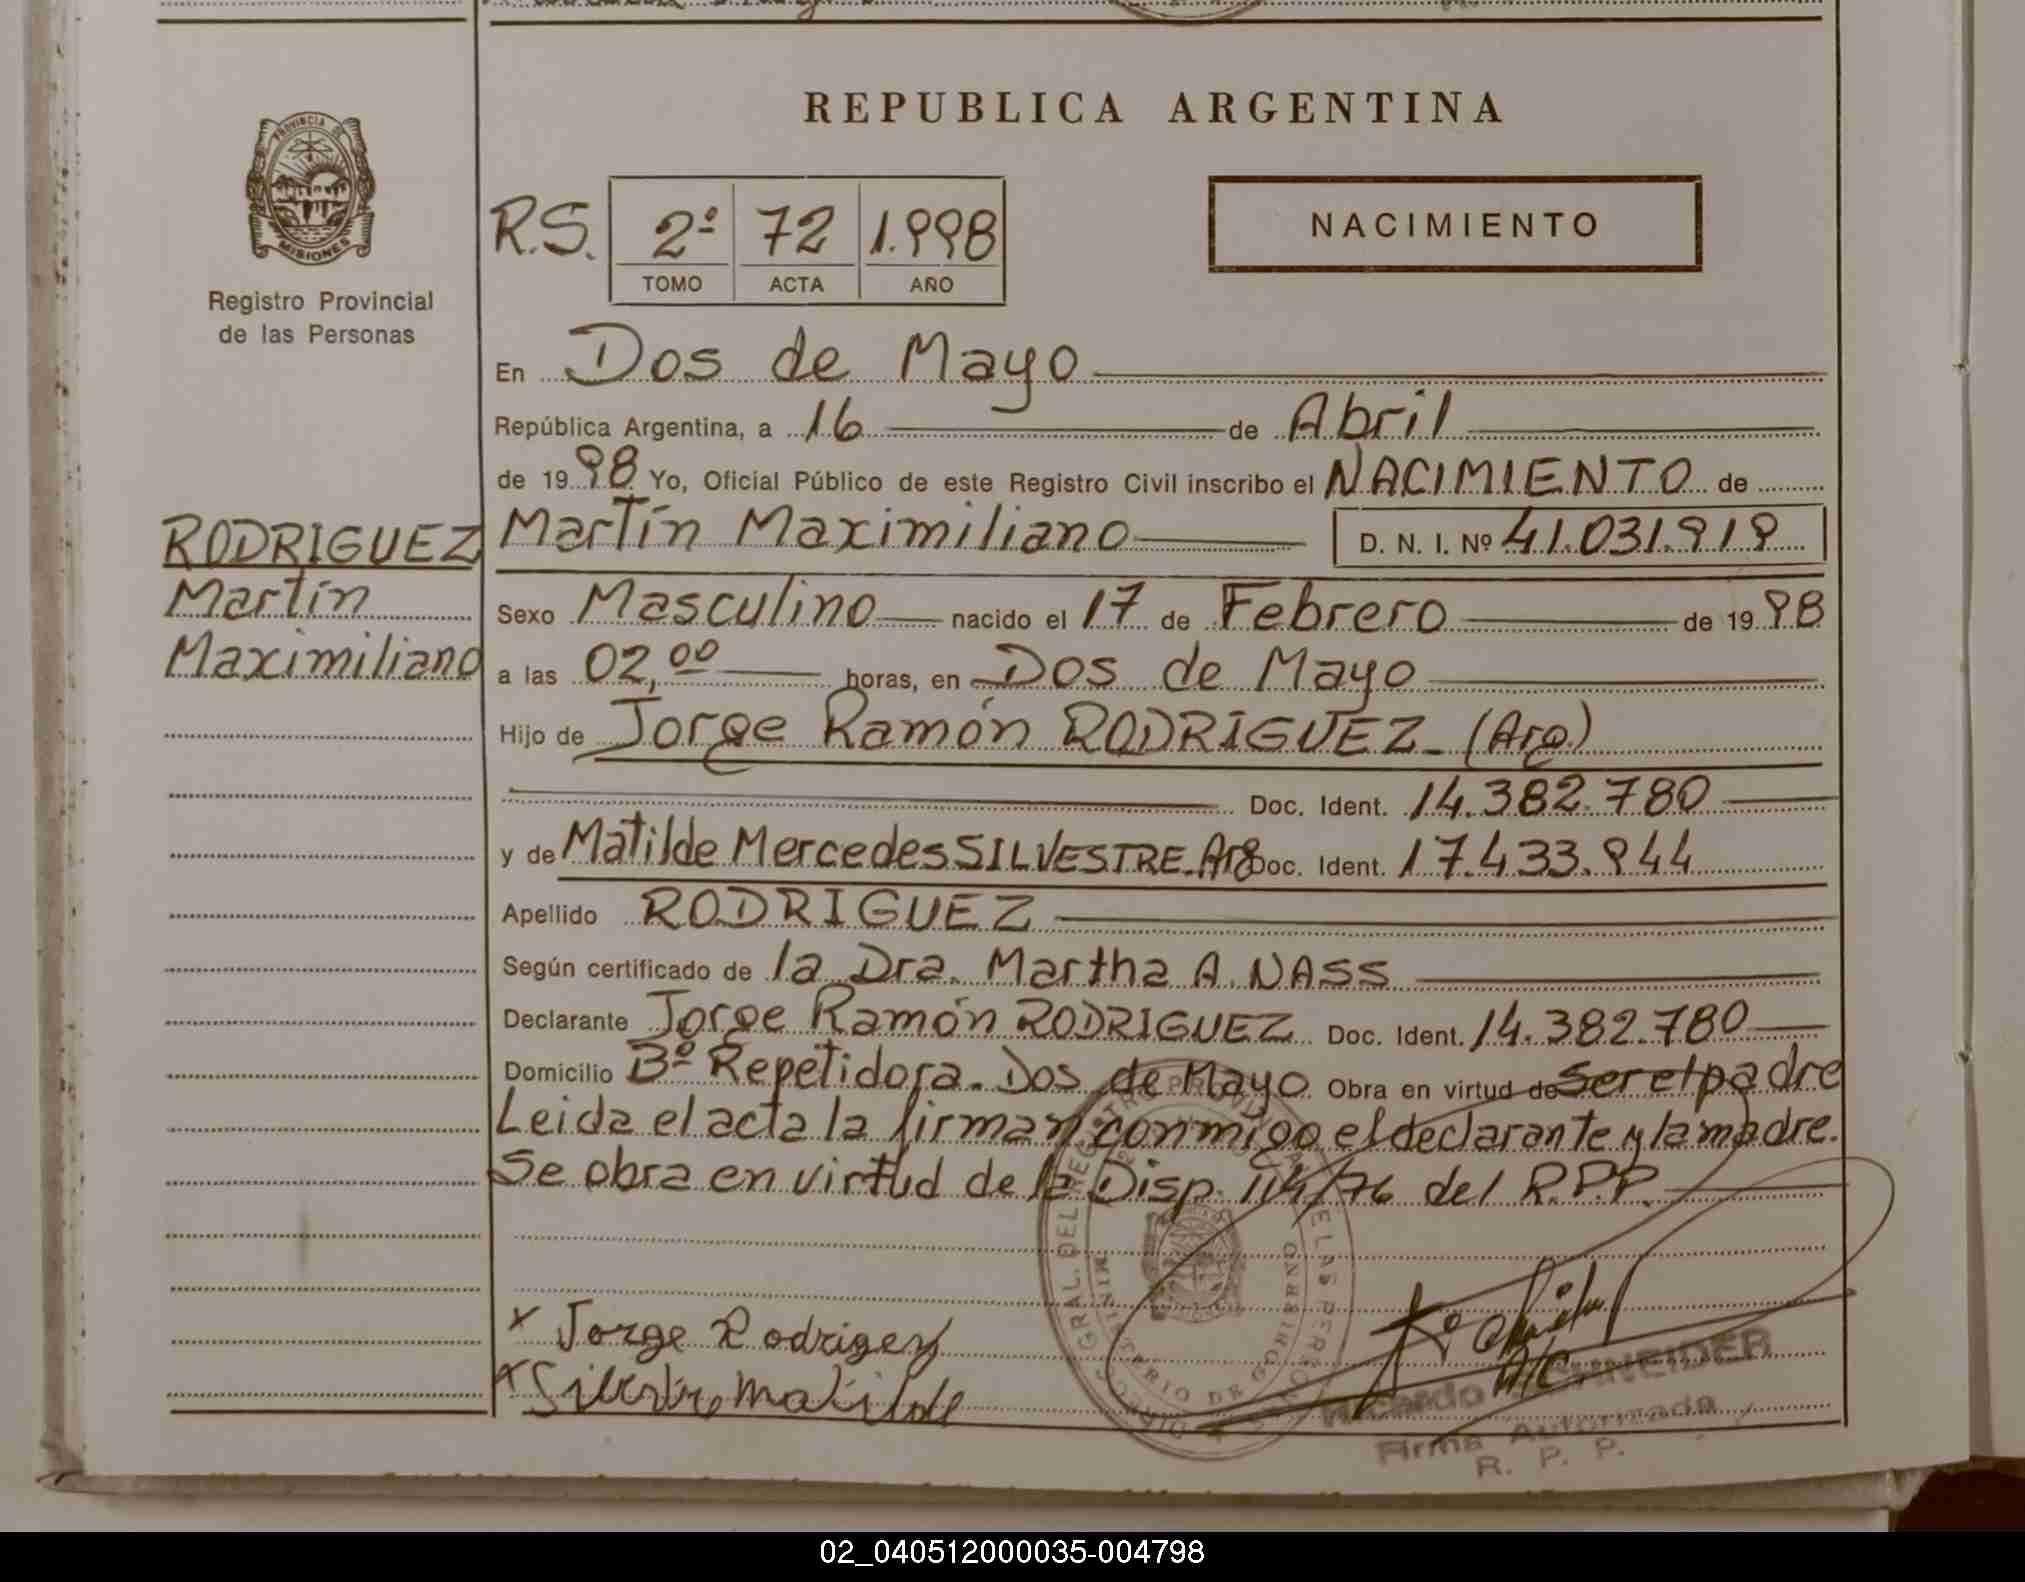 REPUBLICA ARGENTINA
PROVINCIA DE
MISIONES
Registro Provincial
de las Personas
R.S. 2º 72 1.998
TOMO ACTA AÑO
NACIMIENTO
En Dos de Mayo
República Argentina, a 16 de Abril
de 1998 Yo, Oficial Público de este Registro Civil inscribo el NACIMIENTO de
RODRIGUEZ
Martín
Maximiliano
Martín Maximiliano D. N. I. Nº 41.031.919
Sexo Masculino nacido el 17 de Febrero de 1998
a las 02,00 horas, en Dos de Mayo
Hijo de Jorge Ramón RODRIGUEZ - (Arg.)
Doc. Ident. 14.382.780
y de Matilde Mercedes SILVESTRE. Arg Doc. Ident. 17.433.944
Apellido RODRIGUEZ
Según certificado de la Dra. Martha A. NASS
Declarante Jorge Ramón RODRIGUEZ Doc. Ident. 14.382.780
Domicilio Bº Repetidora. Dos de Mayo Obra en virtud de Ser el padre
Leida el acta la firman conmigo el declarante y la madre.
Se obra en virtud de la Disp. 114/76 del R.P.P.
Jorge Rodriguez
Silvestre Matilde
A/C.
Ricardo SCHNEIDER
Firma Autorizada
R. P. P.
MINISTERIO DE GOBIERNO
02_040512000035-004798